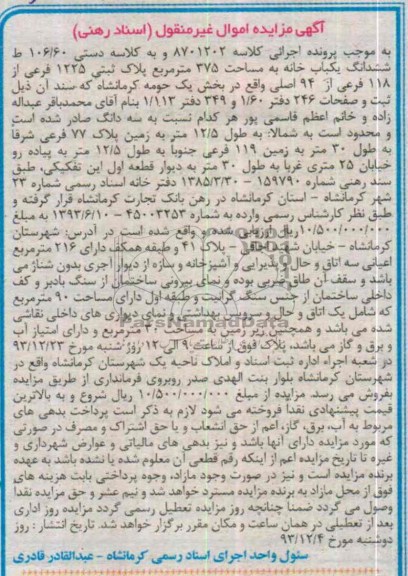 آگهی مزایده اموال غیرمنقول (اسناد رهنی)
به موجب پرونده اجرائی کلاسه ۸۷۰۱۲۰۲ و به کلاسه دستی ۱۰۶/۶۰ ط
ششدانگ یکباب خانه به مساحت ۳۷۵ مترمربع پلاک ثبتی ۱۲۲۵ فرعی از
۱۱۸ فرعی از ۹۴ اصلی واقع در بخش یک حومه کرمانشاه که سند آن ذیل
ثبت و صفحات ۲۴۶ دفتر ۱/۶۰ و ۳۴۹ دفتر ۱/۱۱۳ بنام آقای محمدباقر عبداله
زاده و خانم اعظم قاسمی پور هر کدام نسبت به سه دانگ صادر شده است
و محدود است به شمالا: به طول ۱۲/۵ متر به زمین پلاک ۷۷ فرعی شرقا
به طول ۳۰ متر به زمین ۱۱۹ فرعی جنوبا به طول ۱۲/۵ متر به پیاده رو
خیابان ۲۵ متری غربا به طول ۳۰ متر به دیوار قطعه اول این تفکیکی، طبق
سند رهنی شماره ۱۵۹۷۹۰ - ۱۳۸۵/۳/۳۰ دفتر خانه اسناد رسمی شماره ۳۳
شهر کرمانشاه - استان کرمانشاه در رهن بانک تجارت کرمانشاه قرار گرفته و
طبق نظر کارشناس رسمی وارده به شماره ۴۵۰۰۳۳۵۳ - ۱۳۹۳/۶/۱۰ به مبلغ
۱۰/۵۰۰/۰۰۰/۰۰۰ ریال ارزیابی شده و واقع شده است در آدرس: شهرستان
کرمانشاه - خیابان شهید چاقل - پلاک ۴۱ و طبقه همکف دارای ۲۱۶ مترمربع
اعیانی سه اتاق و حال و پذیرایی و آشپزخانه و سازه از دیوار آجری بدون شناژ می
باشد و سقف آن طاق ضربی بوده و نمای بیرونی ساختمان از سنگ بادبر و کف
داخلی ساختمان از جنس سنگ گرانیت و طبقه اول دارای مساحت ۹۰ مترمربع
که شامل یک اتاق و حال و سرویس بهداشتی و نمای دیواری های داخلی نقاشی
شده می باشد و همچنین زیر زمین به مساحت ۳۰ مترمربع و دارای امتیاز آب
و برق و گاز می باشد، پلاک فوق از ساعت ۹ الی ۱۲ روز شنبه مورخ ۹۳/۱۲/۲۳
در شعبه اجراء اداره ثبت اسناد و املاک ناحیه یک شهرستان کرمانشاه واقع در
شهرستان کرمانشاه بلوار بنت الهدی صدر روبروی فرمانداری از طریق مزایده
بفروش می رسد. مزایده از مبلغ ۱۰/۵۰۰/۰۰۰/۰۰۰ ریال شروع و به بالاترین
قیمت پیشنهادی نقدا فروخته می شود لازم به ذکر است پرداخت بدهی های
مربوط به آب، برق، گاز، اعم از حق انشعاب و یا حق اشتراک و مصرف در صورتی
که مورد مزایده دارای آنها باشد و نیز بدهی های مالیاتی و عوارض شهرداری و
غیره تا تاریخ مزایده اعم از اینکه رقم قطعی آن معلوم شده یا نشده باشد به عهده
برنده مزایده است و نیز در صورت وجود مازاد، وجوه پرداختی بابت هزینه های
فوق از محل مازاد به برنده مزایده مسترد خواهد شد و نیم عشر و حق مزایده نقدا
وصول می گردد ضمنا چنانچه روز مزایده تعطیل رسمی گردد مزایده روز اداری
بعد از تعطیلی در همان ساعت و مکان مقرر برگزار خواهد شد. تاریخ انتشار : روز
دوشنبه مورخ ۹۳/۱۲/۴
سئول واحد اجرای اسناد رسمی کرمانشاه - عبدالقادر قادری
ParsNamadData